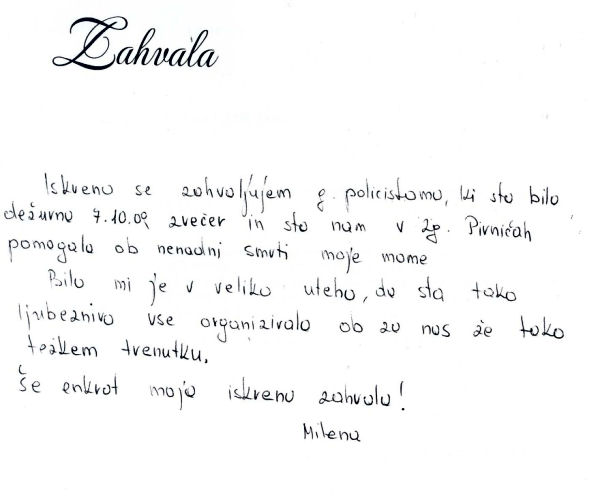 Zahvala
Iskreno se zahvaljujem g. policistoma, ki sta bila
dežurna 7.10.09 zvečer in sta nam v Zg. Pirničah
pomagala ob nenadni smrti moje mame
Bilo mi je v veliko uteho, da sta tako
ljubeznivo vse organizirala ob za nas že tako
težkem trenutku.
Še enkrat moja iskrena zahvala!
Milena